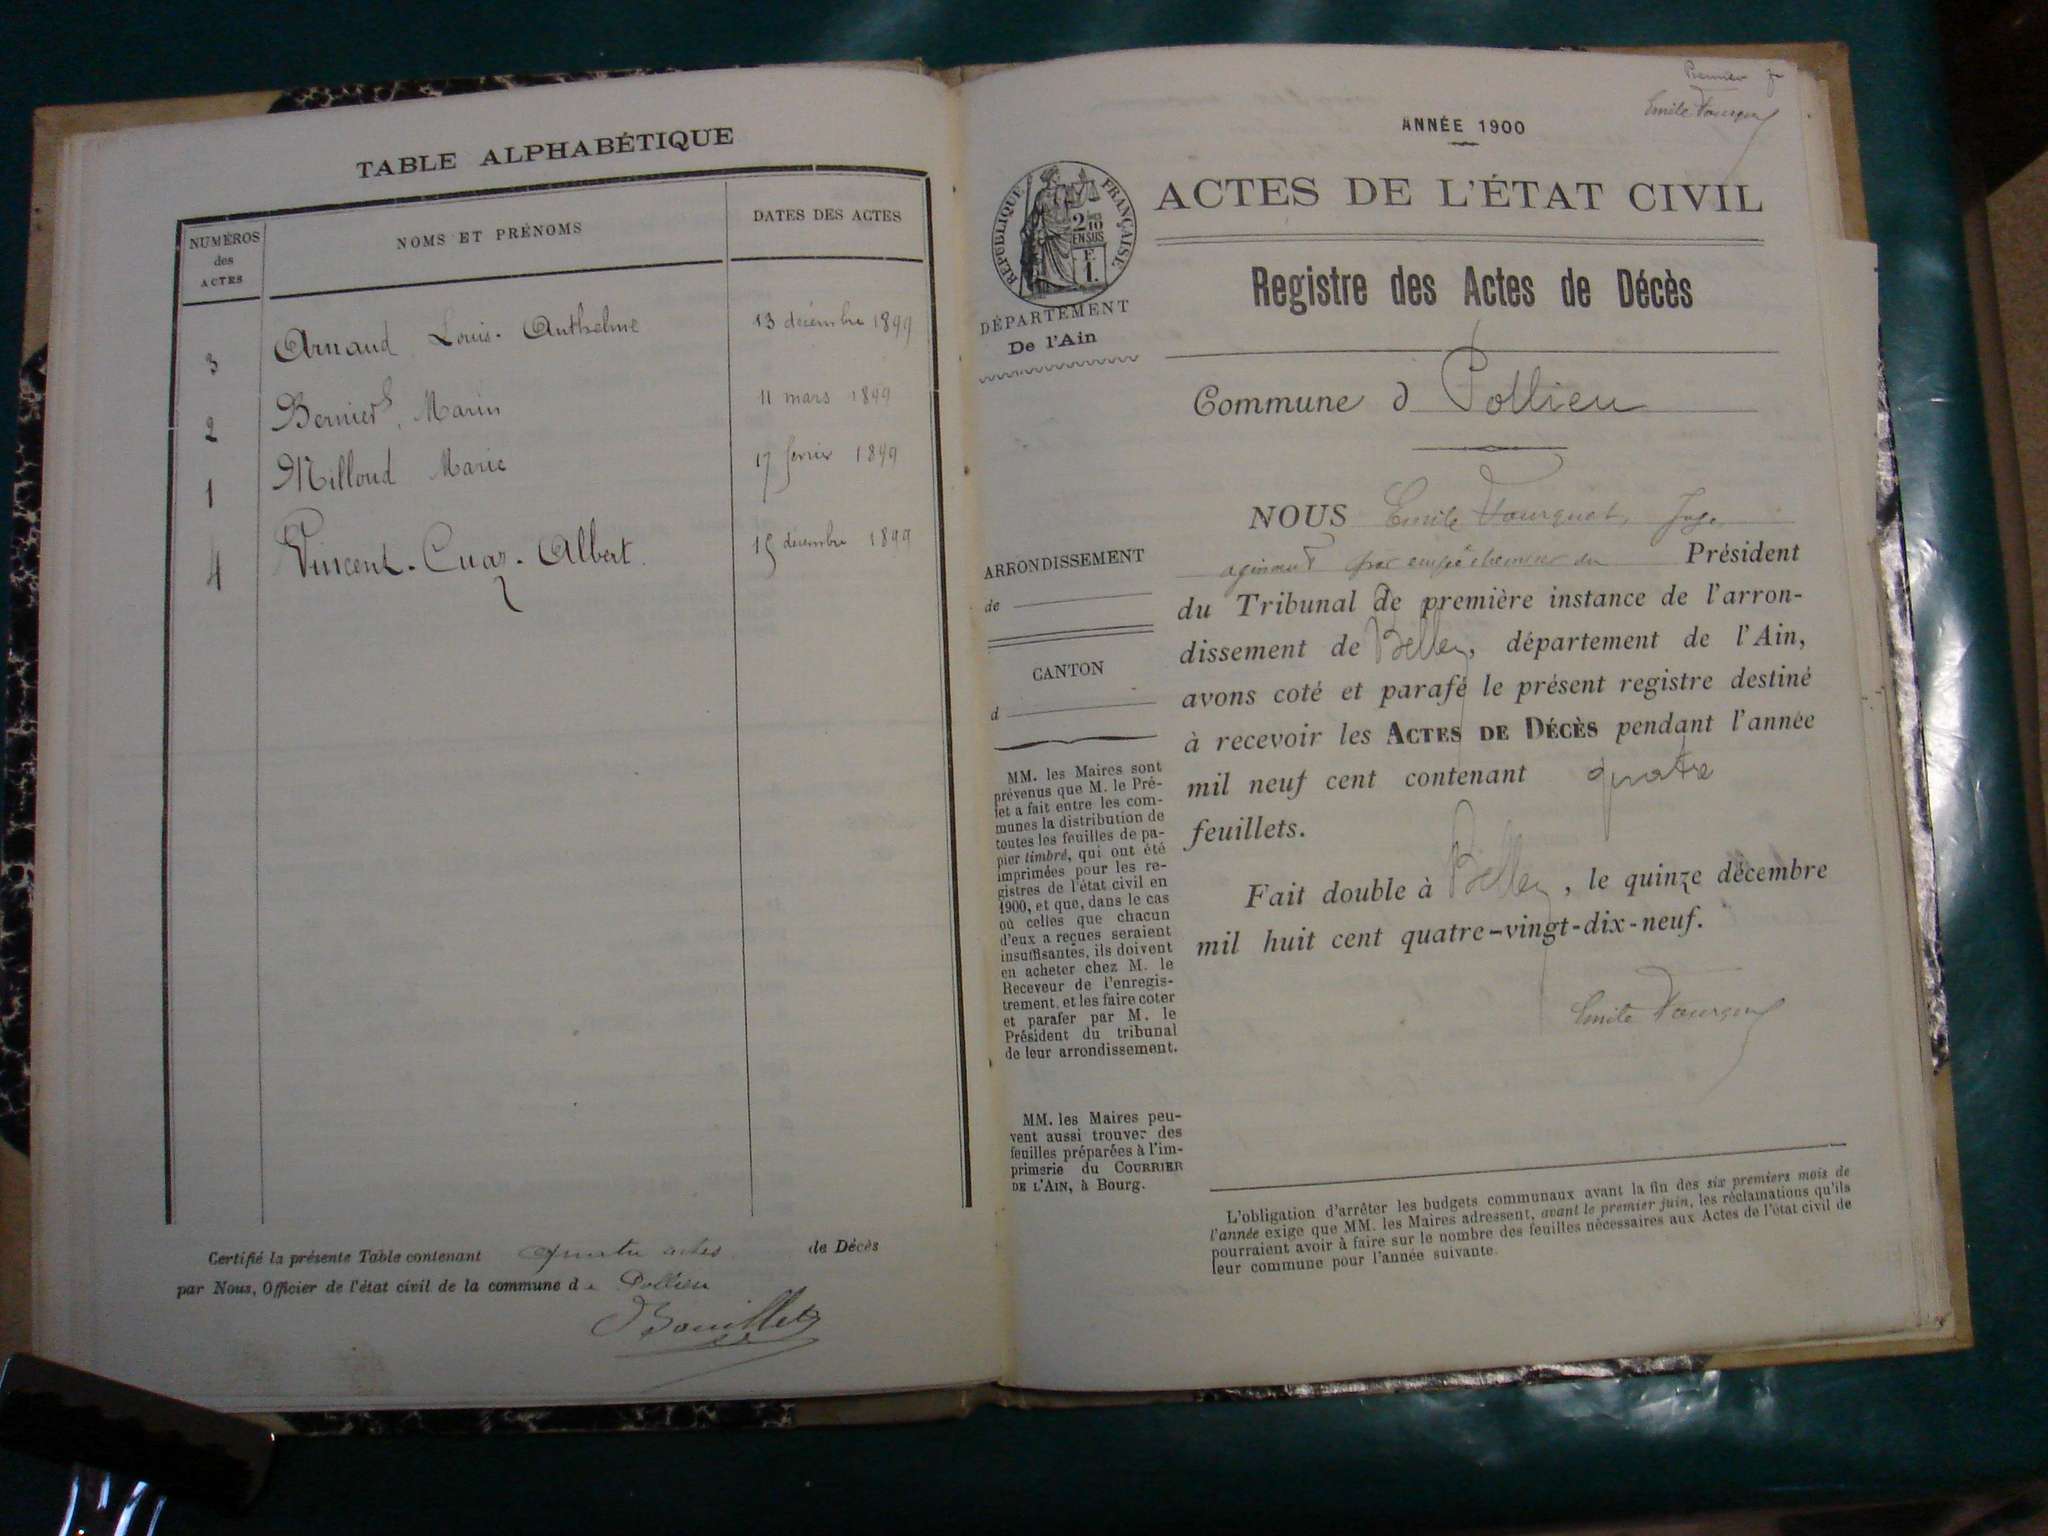 TABLE ALPHABÉTIQUE
NUMÉROS
des
ACTES
NOMS ET PRÉNOMS
DATES DES ACTES
3 Arnaud Louis-Anthelme 13 décembre 1899
2 Bernier, Marin 11 mars 1899
1 Milloud Marie 17 février 1899
4 Vincent-Cuaz-Albert. 15 décembre 1899
Certifié la présente Table contenant quatre actes de Décès
par Nous, Officier de l'état civil de la commune de Pollieu
Bouillet
Premier
Emile Fourquet
ANNÉE 1900
ACTES DE L'ÉTAT CIVIL
RÉPUBLIQUE FRANÇAISE
2/10
EN SUS
F
1.
DÉPARTEMENT
De l'Ain
Registre des Actes de Décès
Commune d Pollieu
NOUS Emile Fourquet, Juge
agissant par empêchement du Président
du Tribunal de première instance de l'arron-
dissement de Belley, département de l'Ain,
avons coté et parafé le présent registre destiné
à recevoir les ACTES DE DÉCÈS pendant l'année
mil neuf cent contenant quatre
feuillets.
Fait double à Belley, le quinze décembre
mil huit cent quatre-vingt-dix-neuf.
Emile Fourquet
ARRONDISSEMENT
de
CANTON
d
MM. les Maires sont
prévenus que M. le Pré-
fet a fait entre les com-
munes la distribution de
toutes les feuilles de pa-
pier timbré, qui ont été
imprimées pour les re-
gistres de l'état civil en
1900, et que, dans le cas
où celles que chacun
d'eux a reçues seraient
insuffisantes, ils doivent
en acheter chez M. le
Receveur de l'enregis-
trement, et les faire coter
et parafer par M. le
Président du tribunal
de leur arrondissement.
MM. les Maires peu-
vent aussi trouver des
feuilles préparées à l'im-
primerie du COURRIER
DE L'AIN, à Bourg.
L'obligation d'arrêter les budgets communaux avant la fin des six premiers mois de
l'année exige que MM. les Maires adressent, avant le premier juin, les réclamations qu'ils
pourraient avoir à faire sur le nombre des feuilles nécessaires aux Actes de l'état civil de
leur commune pour l'année suivante.